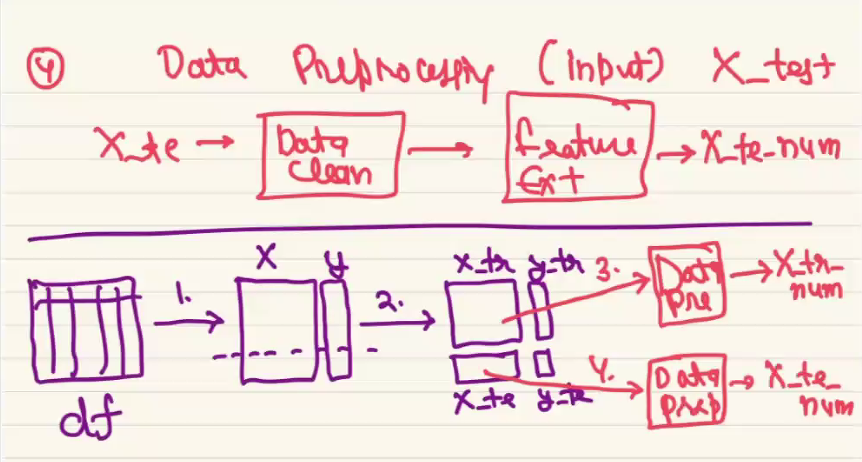 ④ Data Preprocessing (input) X_test
X_te → Data Clean → feature Ext → X_te_num
X y
x_tr y_tr
1. 2. 3. Data Pre → X_tr_num
df
x_te y_te 4. Data prep → X_te_num